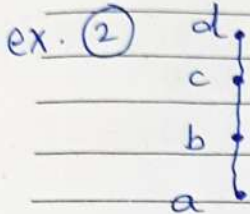 ex. ② d
c
b
a